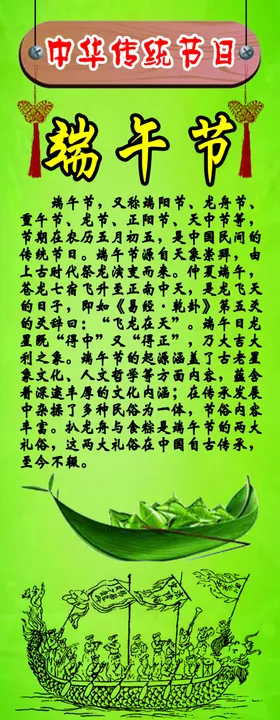 中华传统节日
端午节
端午节，又称端阳节、龙舟节、
重午节、龙节、正阳节、天中节等，
节期在农历五月初五，是中国民间的
传统节日。端午节源自天象崇拜，由
上古时代祭龙演变而来。仲夏端午，
苍龙七宿飞升至正南中天，是龙飞天
的日子，即如《易经·乾卦》第五爻
的爻辞曰：“飞龙在天”。端午日龙
星既“得中”又“得正”，乃大吉大
利之象。端午节的起源涵盖了古老星
象文化、人文哲学等方面内容，蕴含
着深邃丰厚的文化内涵；在传承发展
中杂揉了多种民俗为一体，节俗内容
丰富。扒龙舟与食粽是端午节的两大
礼俗，这两大礼俗在中国自古传承，
至今不辍。